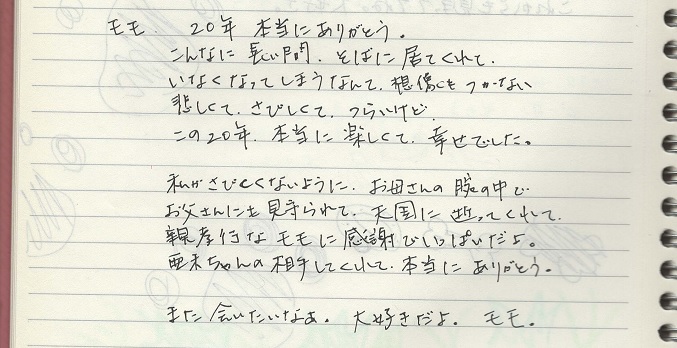 モモ、20年 本当にありがとう。
こんなに長い間、そばに居てくれて、
いなくなってしまうなんて、想像もつかない
悲しくて、さびしくて、つらいけど、
この20年、本当に楽しくて、幸せでした。
私がさびしくないように、お母さんの腕の中で
お父さんにも見守られて、天国に逝ってくれて、
親孝行なモモに感謝でいっぱいだよ。
亜未ちゃんの相手してくれて、本当にありがとう。
また会いたいなぁ。大好きだよ。モモ。